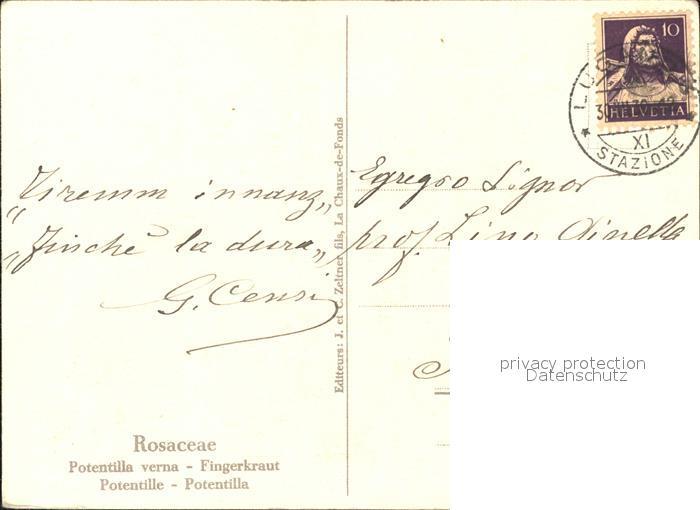 „Tiremm innanz„
„Finchè la dura„
G. Censi
Rosaceae
Potentilla verna - Fingerkraut
Potentille - Potentilla
Editeurs: J. et C. Zeltner fils, La Chaux-de-Fonds
10
HELVETIA
XI
STAZIONE
Egregio Signor
prof. Lino
privacy protection
Datenschutz